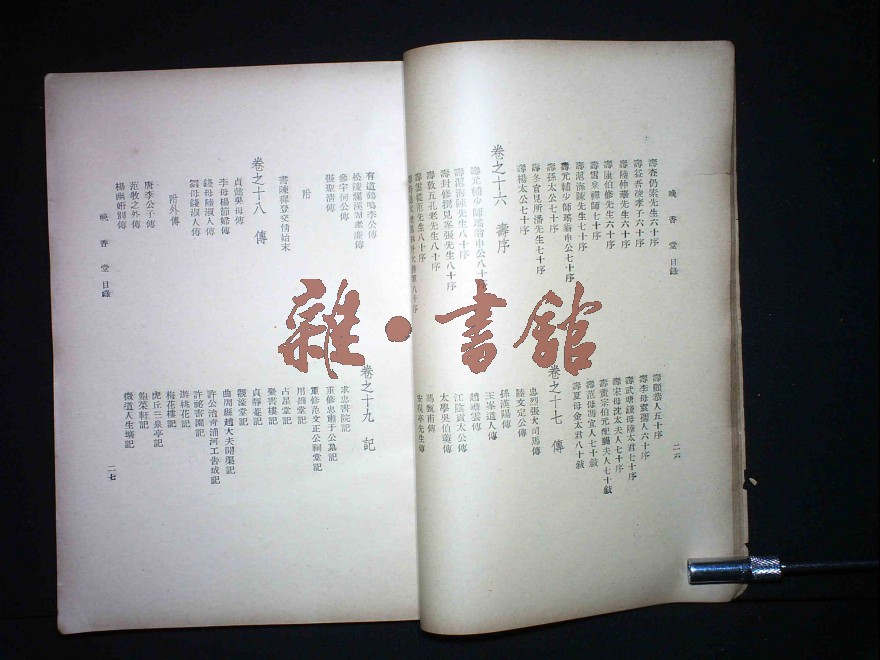 晚香堂目錄
二六
壽查仍索先生六十序
壽益吾凌孝子六十序
壽陸仲華先生六十序
壽陸伯修先生六十序
壽雲泉禪師七十序
壽范海陳先生七十序
壽元輔少師瑤翁申公七十序
壽孫太公七十序
壽冬官見所潘先生七十序
壽楊太公七十序
卷之十六 壽序
壽元輔少師瑤翁申公八十
壽范海陳先生八十序
壽封修撰見峯張先生八十序
壽敦五孔老先生八十序
壽雲從范先生八十序
壽顧孺人五十序
壽李母袁孺人六十序
壽武塘錢母陸太君七十序
壽宋母沈太夫人七十序
壽董宗伯元配夫人七十敍
壽范母馮宜人七十敍
壽夏母金太君八十敍
卷之十七 傳
忠烈張大司馬傳
陸文定公傳
孫漢陽傳
玉峯道人傳
趙靖雲傳
江陰黃太公傳
太學吳伯葵傳
馮甄甫傳
先生傳
有道鶴鳴李公傳
松陵爛溪周孝廉傳
參宇何公傳
張聖清傳
附
書陳穉登交情始末
卷之十八 傳
貞懿吳母傳
李母楊節婦傳
錢母陸淑人傳
劉母錢淑人傳
附外傳
唐李公子傳
范牧之外傳
楊幽妍別傳
卷之十九 記
求忠書院記
重修忠肅于公墓記
重修范文正公祠堂記
用拙堂記
占星堂記
聚書樓記
貞靜菴記
觀濠堂記
曲周縣趙大夫開渠記
許公治靑浦河工告成記
許祕書園記
游桃花記
梅花樓記
虎丘三泉亭記
飽菜軒記
微道人生壙記
晚香堂目錄
二七
雜·書館